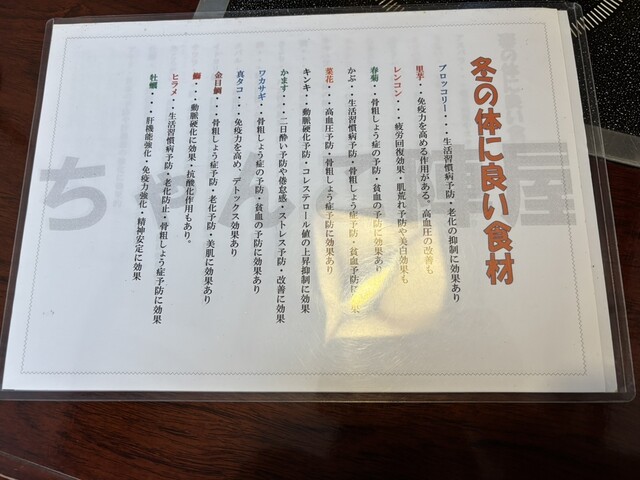 冬の体に良い食材
ブロッコリー・・・生活習慣病予防・老化の抑制に効果あり
里芋・・・免疫力を高める作用がある。高血圧の改善も
レンコン・・・疲労回復効果・肌荒れ予防や美白効果も
春菊・・・骨粗しょう症の予防・貧血の予防に効果あり
かぶ・・・生活習慣病予防・骨粗しょう症予防・貧血予防に効果
菜花・・・高血圧予防・骨粗しょう症予防に効果あり
キンキ・・・動脈硬化予防・コレステロール値の上昇抑制に効果
かます・・・二日酔い予防や倦怠感・ストレス予防・改善に効果
ワカサギ・・・骨粗しょう症の予防・貧血の予防に効果あり
真タコ・・・免疫力を高め、デトックス効果あり
金目鯛・・・骨粗しょう症予防・老化予防・美肌に効果あり
鰤・・・動脈硬化に効果・抗酸化作用もあり。
ヒラメ・・・生活習慣病予防・老化防止・骨粗しょう症予防に効果あり
牡蠣・・・肝機能強化・免疫力強化・精神安定に効果